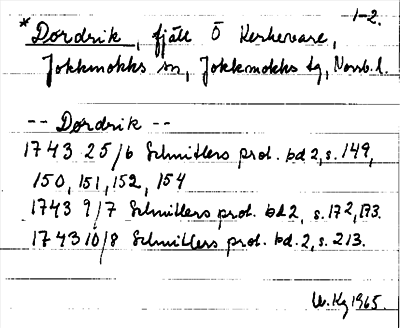 1-2.
*Dordrik, fjäll Ö Kerkevare,
Jokkmokks sn, Jokkmokks tg, Norrb. l.
-- Dordrik --
1743 25/6 Schnitlers prot. bd 2, s. 149,
150, 151, 152, 154
1743 9/7 Schnitlers prot. bd 2, s. 172, 173.
1743 10/8 Schnitlers prot. bd. 2, s. 213.
1965.